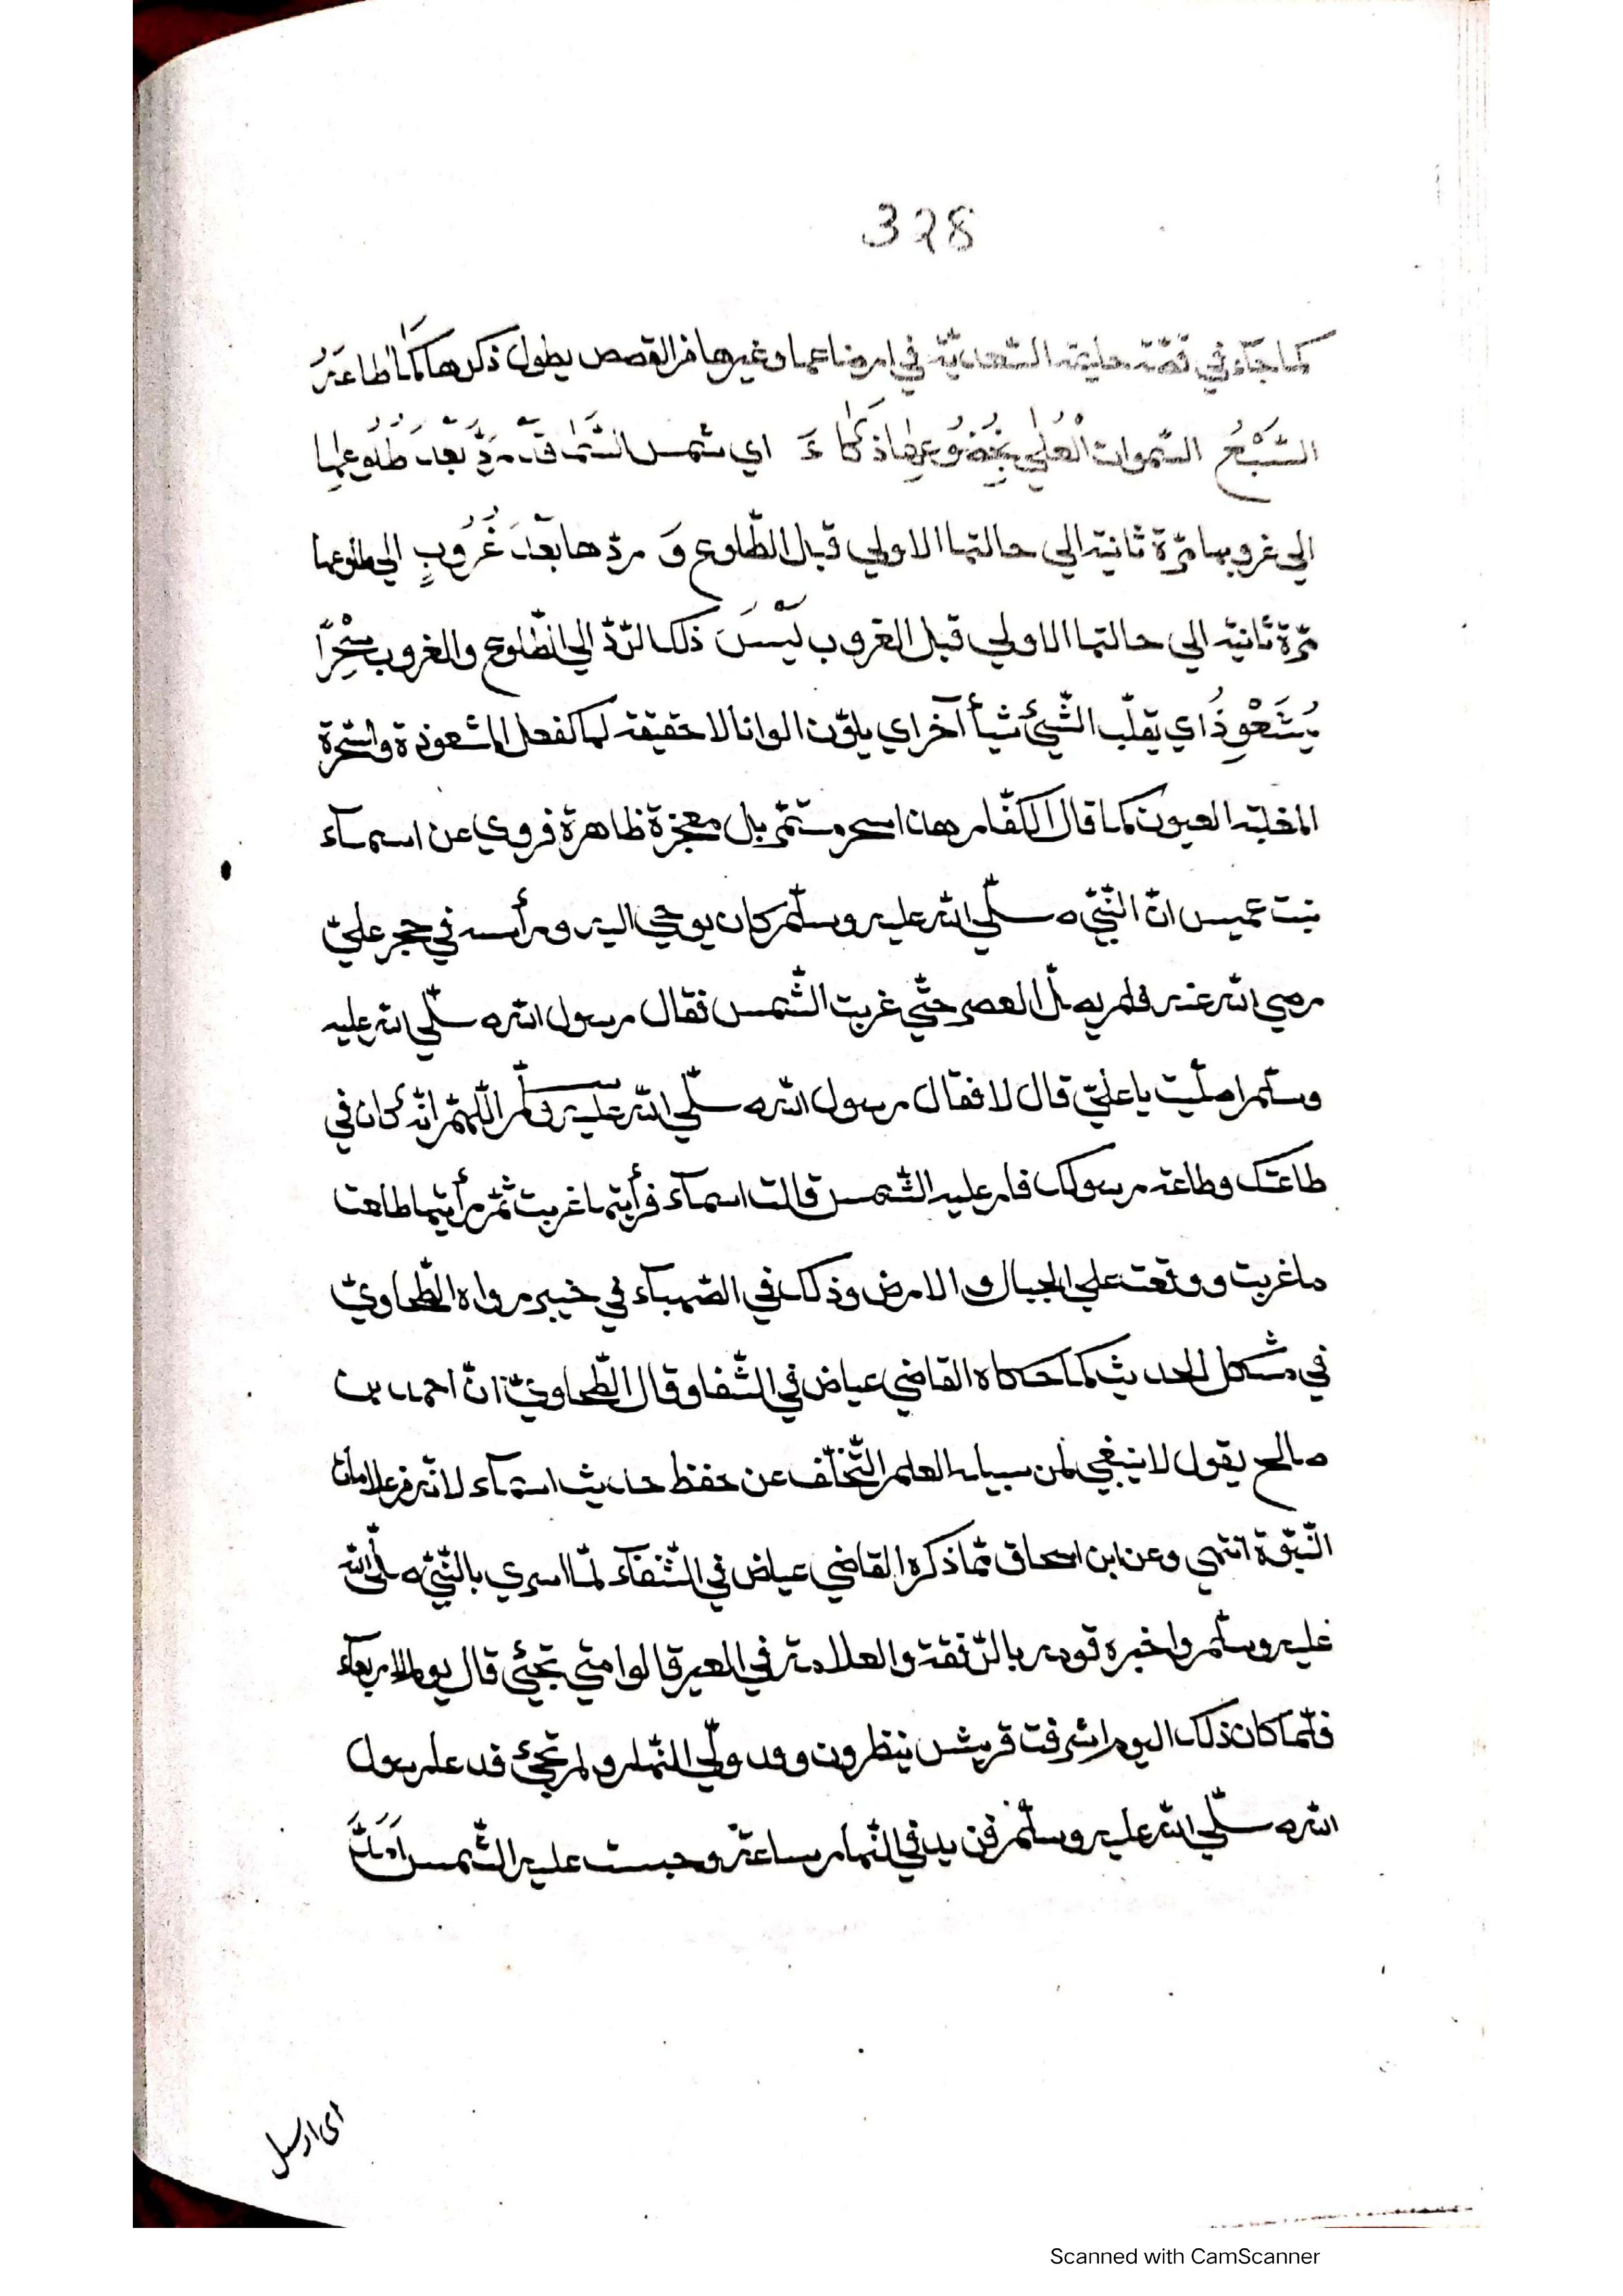 328
كما جآء في قصّة حليمة السّعديّة في ارضاعها وغيرها من القصص يطول ذكرها كَمَا اطاعَتْهُ
السَّبْعُ السّموات الْعُلٰي بِخُضُوعِهَا ذُكَاءَ اي شمس السّمآ قَدْ رَدَّ بَعْدَ طُلُوعِهَا
الي غروبها مرّة ثانية الي حالتها الاولي قبل الطّلوع وَ ردّها بَعْدَ غُرُوبٍ الي طلوعها
مرّة ثانية الي حالتها الاولي قبل الغروب لَيْسَ ذلك الرّدّ الي الطّلوع والغروب سِحْرًا
يُشَعْوِذُ اي يقلّب الشّيئ شيأ آخر اي يلوّن الوانا لا حقيقة لها كفعل المشعوذة والسّحرة
المخيلة العيون كما قال الكفّار هذا سحر مستمّر بل معجزة ظاهرة فروي عن اسمآء
بنت عميس انّ النّبيّ صلّي الله عليه وسلّم كان يوحي اليه ورأسه في حجر عليّ
رضي الله عنه فلم يصلّ العصر حتّي غربت الشّمس فقال رسول الله صلّي الله عليه
وسلّم اصلّيت يا عليّ قال لا فقال رسول الله صلّي الله عليه وسلّم اللّهمّ انّه كان في
طاعتك وطاعة رسولك فارد عليه الشّمس قالت اسمآء فرأيتها غربت ثمّ رأيتها طلعت
ما غربت ووقعت علي الجبال والارض وذلك في الصّهبآء في خيبر رواه الطّحاويّ
في مشكل الحديث كما حكاه القاضي عياض في الشّفا وقال الطّحاويّ انّ احمد بن
صالح يقول لا ينبغي لمن سبيله العلم التّخلّف عن حفظ حديث اسمآء لانّه من علامات
النّبوّة انتهي وعن ابن اسحاق ممّا ذكره القاضي عياض في الشّفآء لمّا اسري بالنّبيّ صلّي الله
عليه وسلّم واخبره قومه بالرّفقة والعلامة في العير قالوا متي تجيئ قال يوم الاربعآء
فلمّا كان ذلك اليوم اشرفت قريش ينظرون وقد ولّي النّهار ولم تجئ فدعا رسول
الله صلّي الله عليه وسلّم فزيد في النّهار ساعة وحبست عليه الشّمس
اي ارسل
Scanned with CamScanner